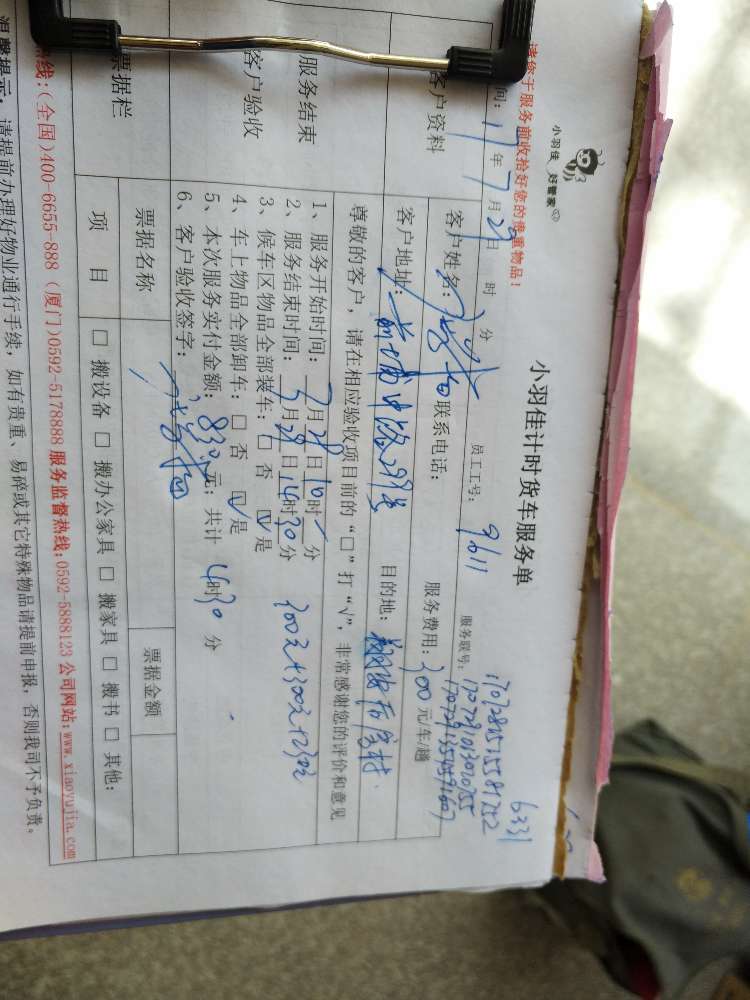 小羽佳 好管家
小羽佳计时货车服务单
6331
请您于服务前收拾好您的贵重物品!
员工工号: 9611
服务联号:
间: 17年7月29日 时 分
客户资料
客户姓名:
联系电话:
服务费用: 300元车/趟
客户地址:
目的地:
尊敬的客户, 请在相应验收项目前的“□”打“√”, 非常感谢您的评价和意见
服务结束
客户验收
1、服务开始时间: 7月29日10时 分
2、服务结束时间: 7月29日14时30分
3、候车区物品全部装车: □ 否 ☑ 是
4、车上物品全部卸车: □ 否 ☑ 是
5、本次服务实付金额: 830元; 共计 4时30分
300元+300元+230元
6、客户验收签字:
票据栏
票据名称
票据金额
项 目
□ 搬设备 □ 搬办公家具 □ 搬家具 □ 搬书 □ 其他:
线:(全国)400-6655-888 (厦门)0592-5178888 服务监督热线:0592-5888123 公司网站:www.xiaoyujia.com
温馨提示: 请提前办理好物业通行手续, 如有贵重、易碎或其它特殊物品请提前申报, 否则我司不予负责。